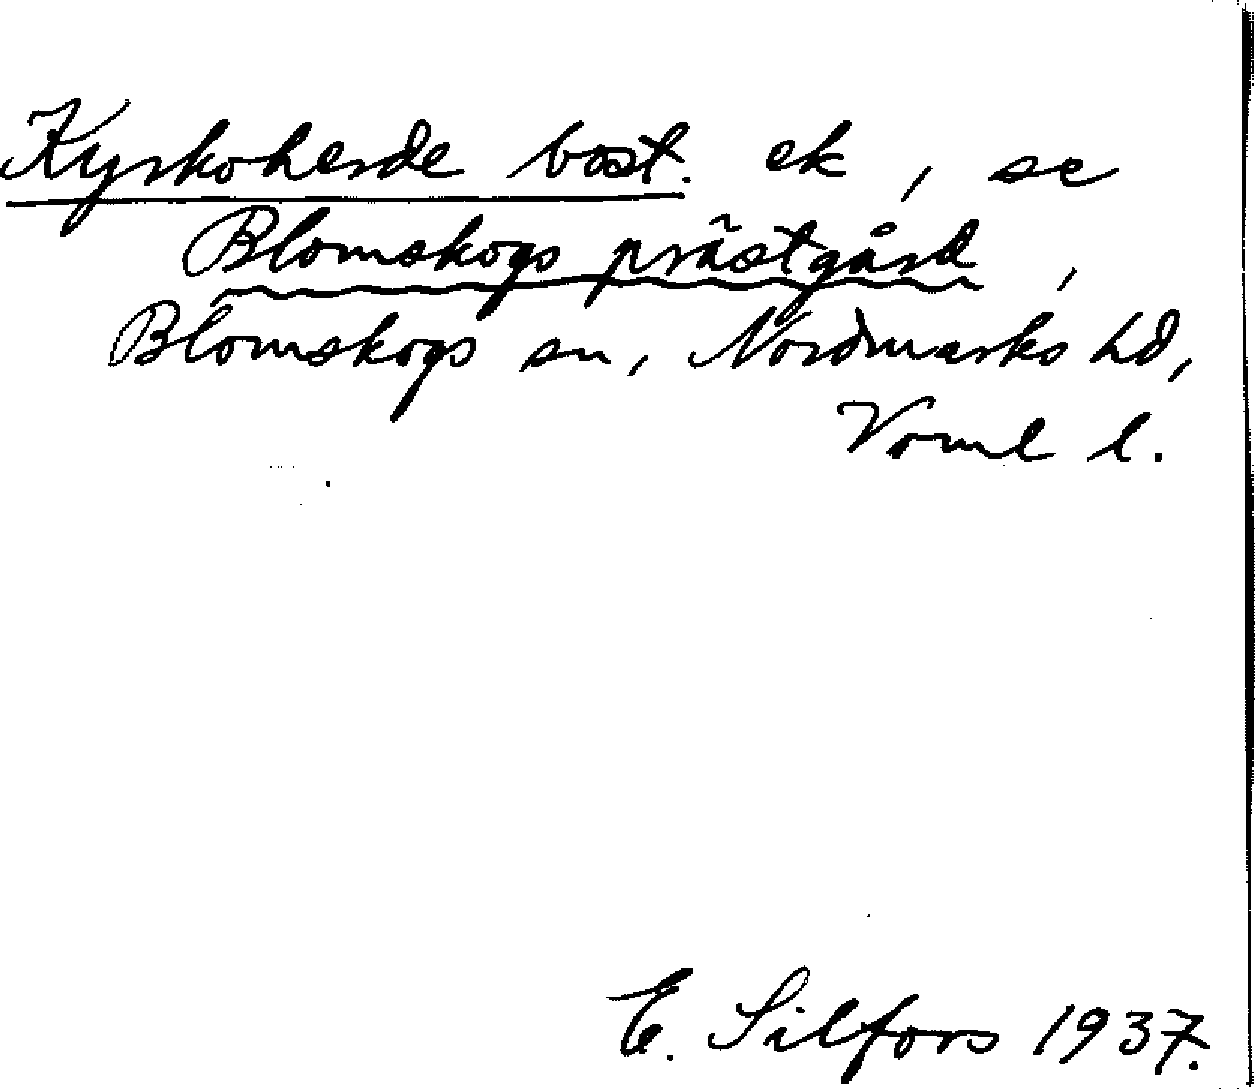 Kyrkoherde bost. ek, se
Blomskogs prästgård,
Blomskogs sn, Nordmarks hd,
Vrml l.
E. Silfors 1937.